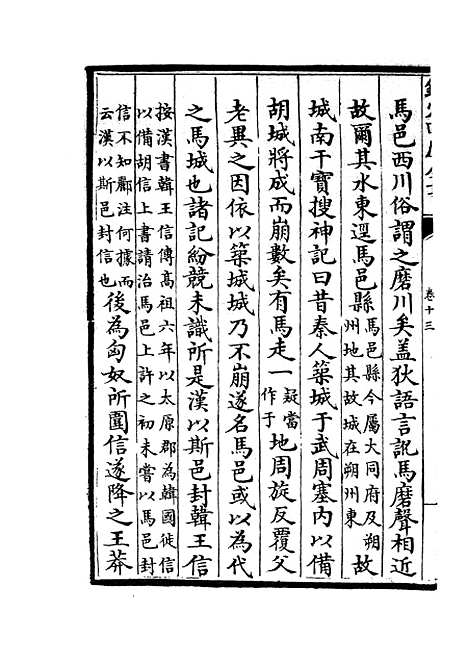 馬邑西川俗謂之磨川矣盖狄語音訛馬磨聲相近
故爾其水東逕馬邑縣馬邑縣今屬大同府及朔州地其故城在朔州東故
城南干寶搜神記曰昔秦人築城于武周塞内以備
胡城將成而崩數矣有馬走一疑當作于地周旋反覆父
老異之因依以築城城乃不崩遂名馬邑或以為代
之馬城也諸記紛競未識所是漢以斯邑封韓王信
按漢書韓王信傳髙祖六年以太原郡為韓國徙信以備胡信上書請治馬邑上許之初未嘗以馬邑封
信不知酈注何據而云漢以斯邑封信也後為匈奴所圍信遂降之王莽
卷十三